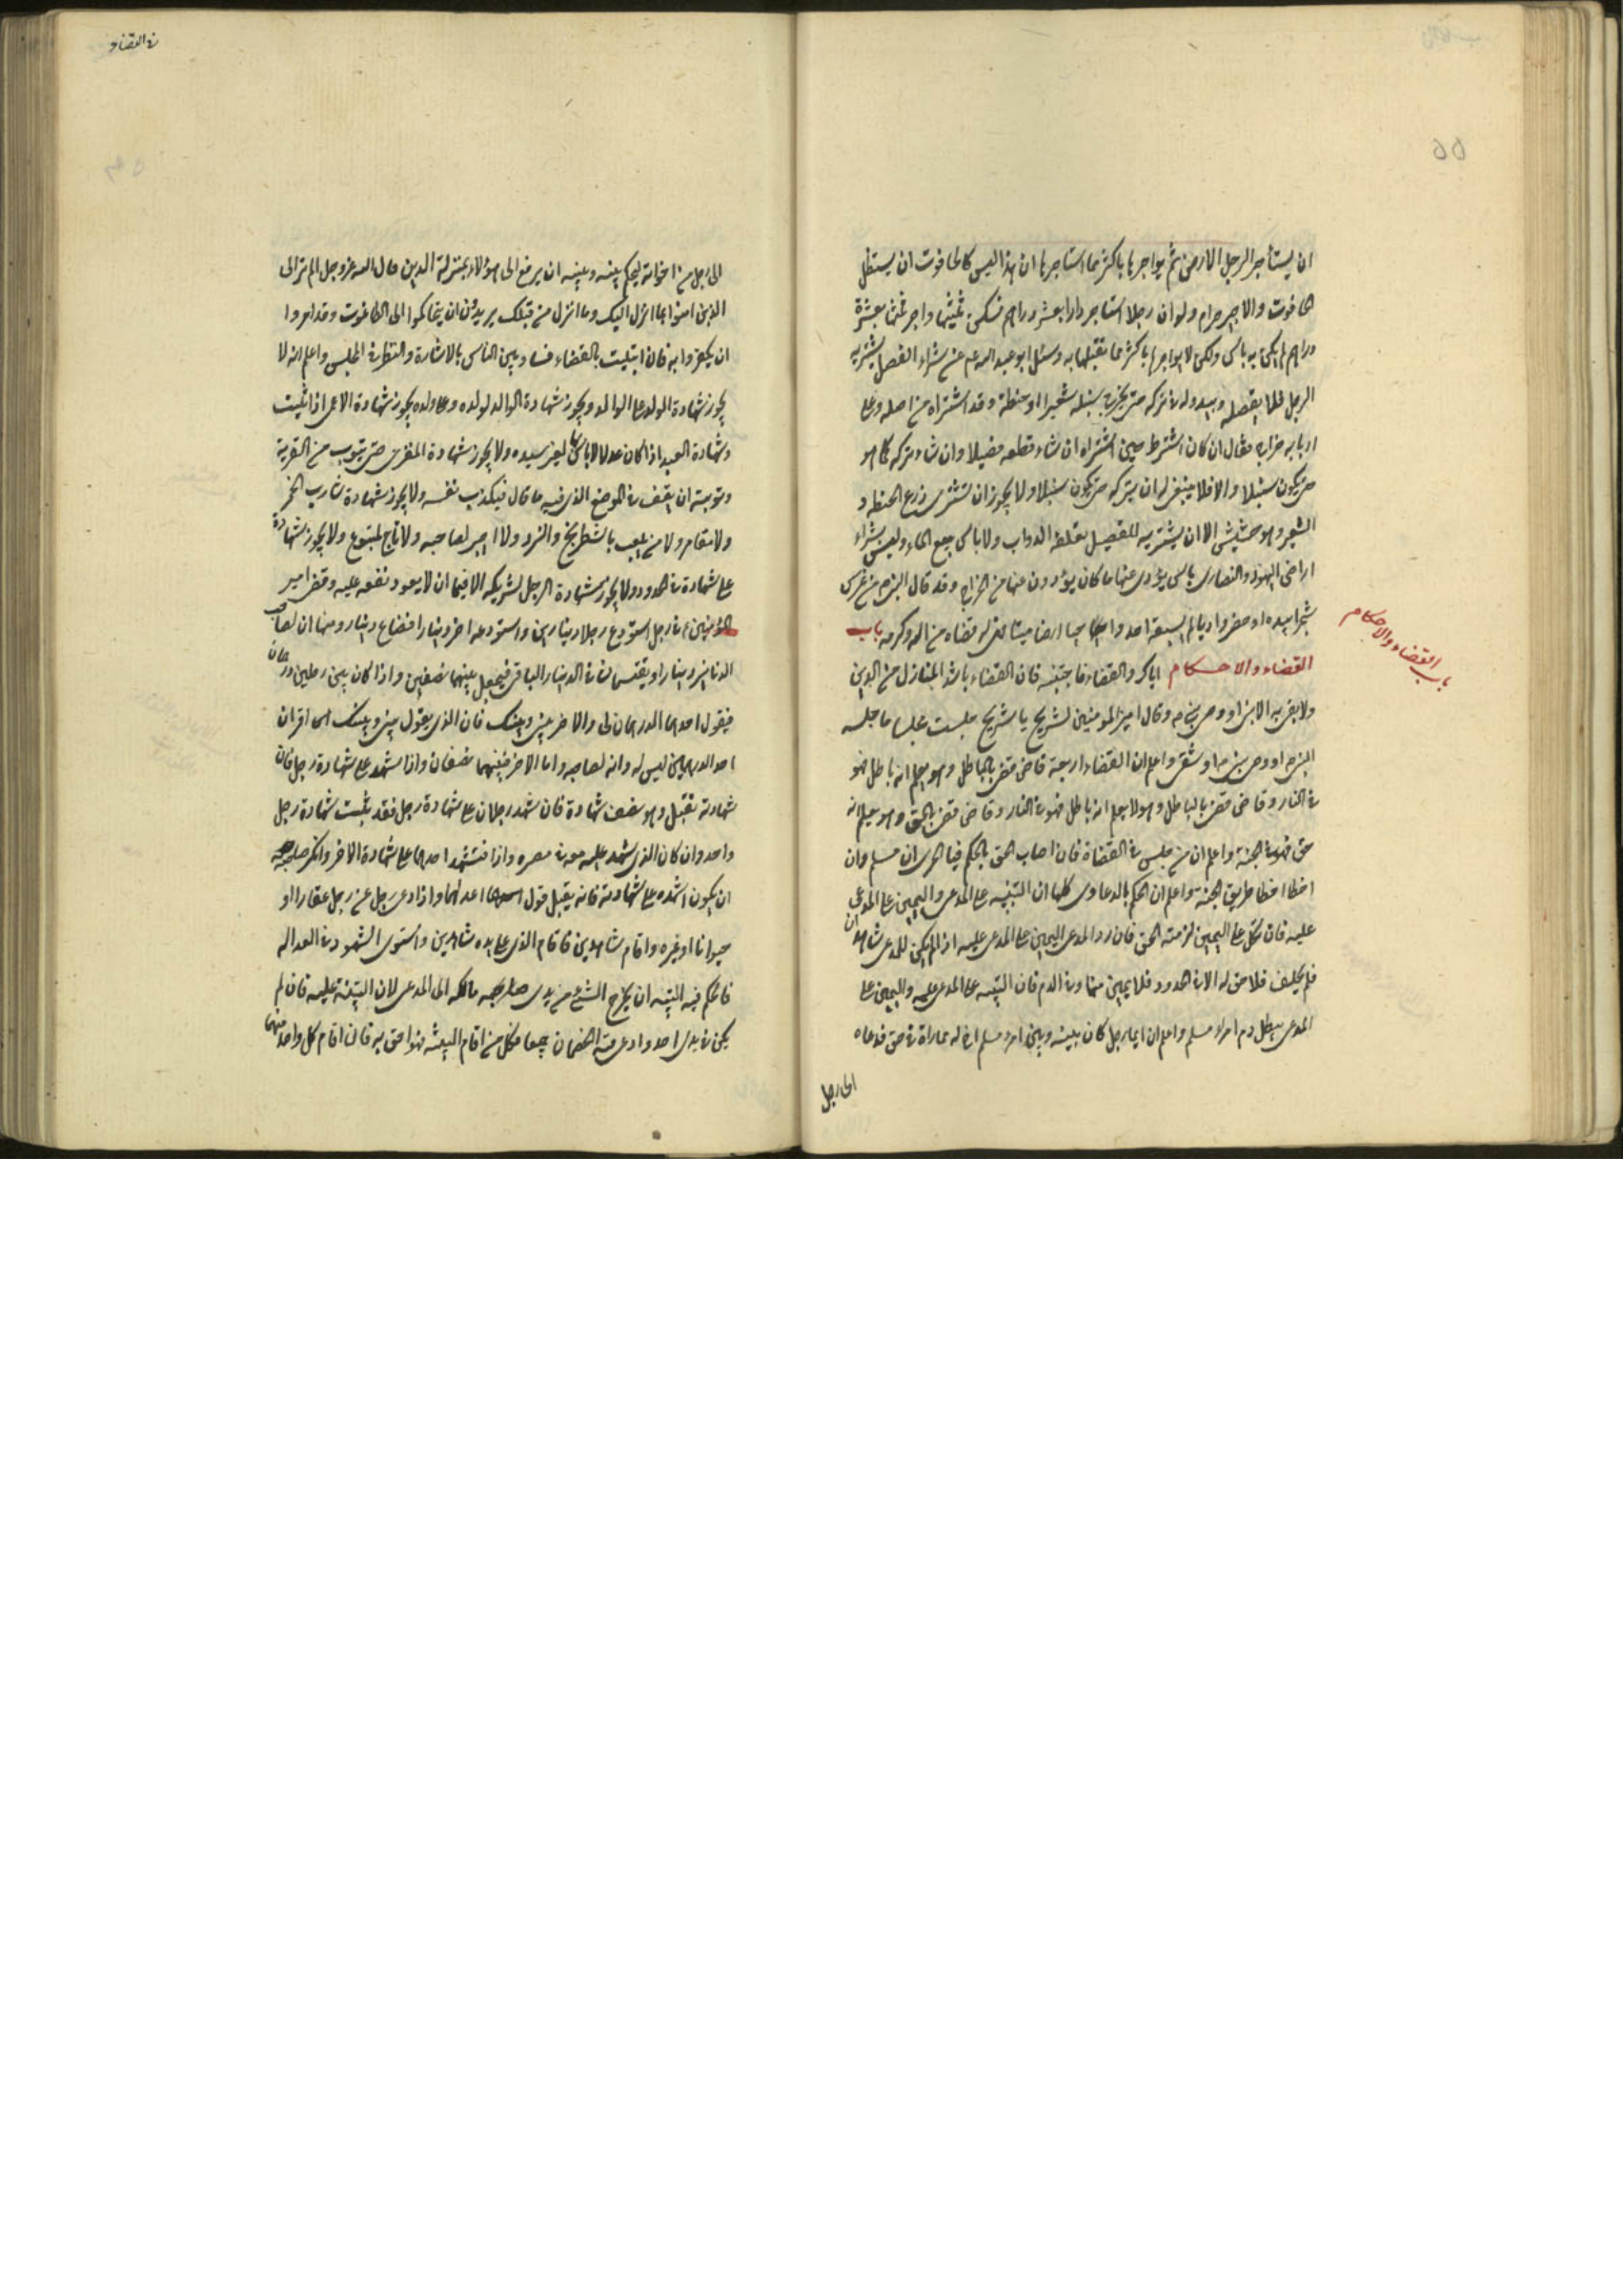 ٥٥
ان يستأجر الرجل الارض ثم يواجرها باكثر مما استاجرها ان هذا ليس كالحانوت ان يستغل
الحانوت والاجير حرام ولو ان رجلا استاجر دارا بعشر دراهم فسكن ثلثيها واجر ثلثها بعشرة
دراهم لم يكن به باس ولكن لا يواجرها باكثر مما تقبلها به وسئل ابو عبد الله ع عن شراء القصيل يشتريه
الرجل فلا يقصله ويبدو له في تركه حتى يخرج سنبله شعيرا او حنطة وقد اشتراه من اصله وعلى
اربابه خراج فقال ان كان اشترط حين اشتراه ان شاء قطعه قصيلا وان شاء تركه كما هو
حتى يكون سنبلا والا فلا ينبغي له ان يتركه حتى يكون سنبلا ولا يجوز ان تشترى زرع الحنطة و
الشعير وهو حشيش الا ان يشتريه للقصيل يعلفه الدواب ولا باس ببيع الماء وليس بشراء
اراضي اليهود والنصارى باس يؤدى عنها ما كان يؤدون عنها من الخراج وقد قال النبي ص من غرس
شجرا بيده او حفر واديا لم يسبقه احد واحيا ارضا ميتا فهى له قضاه من الله وكرمه باب
باب القضاء والاحكام
القضاء والاحكام اياك والقضاء فاجتنبه فان القضاء باشد المنازل من الدين
ولا يفى به الا نبي او وصي نبي وقال امير المومنين لشريح يا شريح جلست مجلسا ما جلسه
الا نبي او وصي نبي او شقي واعلم ان القضاة اربعة قاضى قضى بالباطل وهو يعلم انه باطل فهو
في النار وقاضى قضى بالباطل وهو لا يعلم انه باطل فهو في النار وقاضى قضى بالحق وهو يعلم انه
حق فهو في الجنة واعلم ان من جلس في القضاة فان اصاب الحق بالحكم فبالحرى ان يسلم وان
اخطا اخطا طريق الجنة واعلم ان الحكم بالدعاوى كلها ان البينه على المدعى واليمين على المدعى
عليه فان نكل على اليمين لزمته الحق فان رد المدعى اليمين على المدعى عليه اذا لم يكن للمدعى شاهدان
فلم يحلف فلا حق له الا في الحدود فلا يمين فيها وفي الدم فان البينه على المدعى عليه واليمين على
المدعى ليبطل دم امرء مسلم واعلم ان ايما رجل كان بينه وبين امرء مسلم اخ له مماراة في حق فدعاه
الى رجل
في القضاء
الى رجل من اخوانه ليحكم بينه وبينه ان يرفع الى هؤلاء بمنزلة الذين قال الله عز وجل الم تر الى
الذين امنوا بما انزل اليك وما انزل من قبلك يريدون ان يتحاكموا الى الطاغوت وقد امروا
ان يكفروا به فان ابتليت بالقضاء فساو بين الناس بالاشارة والنظر في المجلس واعلم انه لا
يجوز شهادة الولد على الوالد ويجوز شهادة الوالد لولده وعلى ولده يجوز شهادة الاعمى اذا اثبت
وشهادة العبد اذا كان عدلا لا باس بها لغير سيده ولا يجوز شهادة المفترى حتى يتوب من الفرية
وتوبته ان يقف في الموضع الذى فيه ما قال فيكذب نفسه ولا يجوز شهادة شارب الخمر
ولا مقامر ولا من يلعب بالشطرنج والنرد ولا اجير لصاحبه ولا تابع لمتبوع ولا يجوز شهادة
على شهادة في الحدود ولا يجوز شهادة الرجل لشريكه الا فيما ان لا يعود نفعه عليه وقضى امير
المؤمنين ع في رجل استودع رجلا دينارين واستودعه اخر دينارا فضاع دينار منها ان لصاحب
الدنانير دينارا ويقتسمان في الدينار الباقي فيجعل بينهما نصفين واذا كان بين رجلين درهمان
فيقول احدهما الدرهمان لى والاخر بينى وبينك فان الذى يقول بينى وبينك انما اقر ان
احد الدرهمين ليس له وانه لصاحبه واما الاخر فبينهما نصفان واذا شهد على شهادة رجل فان
شهادته تقبل وهو نصف شهادة فان شهد رجلان على شهادة رجل فقد يثبت شهادة رجل
واحد وان كان الذى شهد عليه معه في مصره واذا استشهد احدهما على شهادة الاخر وانكر صاحبه
ان يكون اشهده على شهادته فانه يقبل قول احدهما اعدلهما واذا ادعى رجل على رجل عقارا او
حيوانا او غيره واقام شاهدين فاقام الذى على يده شاهدين واستوى الشهود في العدالة
فالحكم فيه البينه ان يخرج الشئ من يدى صاحبه مالكه الى المدعى لان البينه عليه فان لم
يكن في يدى احد وادعى فيه الخصمان جميعا فكل من اقام البينة فهو احق به فان اقام كل واحد منهما